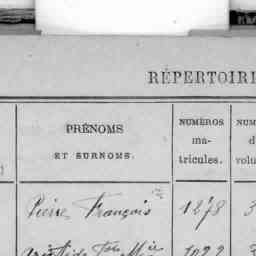 RÉPERTOIRE
PRÉNOMS
ET SURNOMS.
NUMÉROS
ma-
tricules.
NUM
d
volu
Pierre François 1278 3